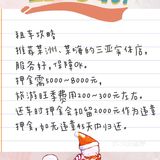 租车攻略
推荐某洲、某嗨的三亚实体店,
服务好,保障OK。
押金需5000~8000元,
旅游旺季费用200~300元左右。
还车时押金会扣留2000元作为违章
押金,如无违章45天内归还。